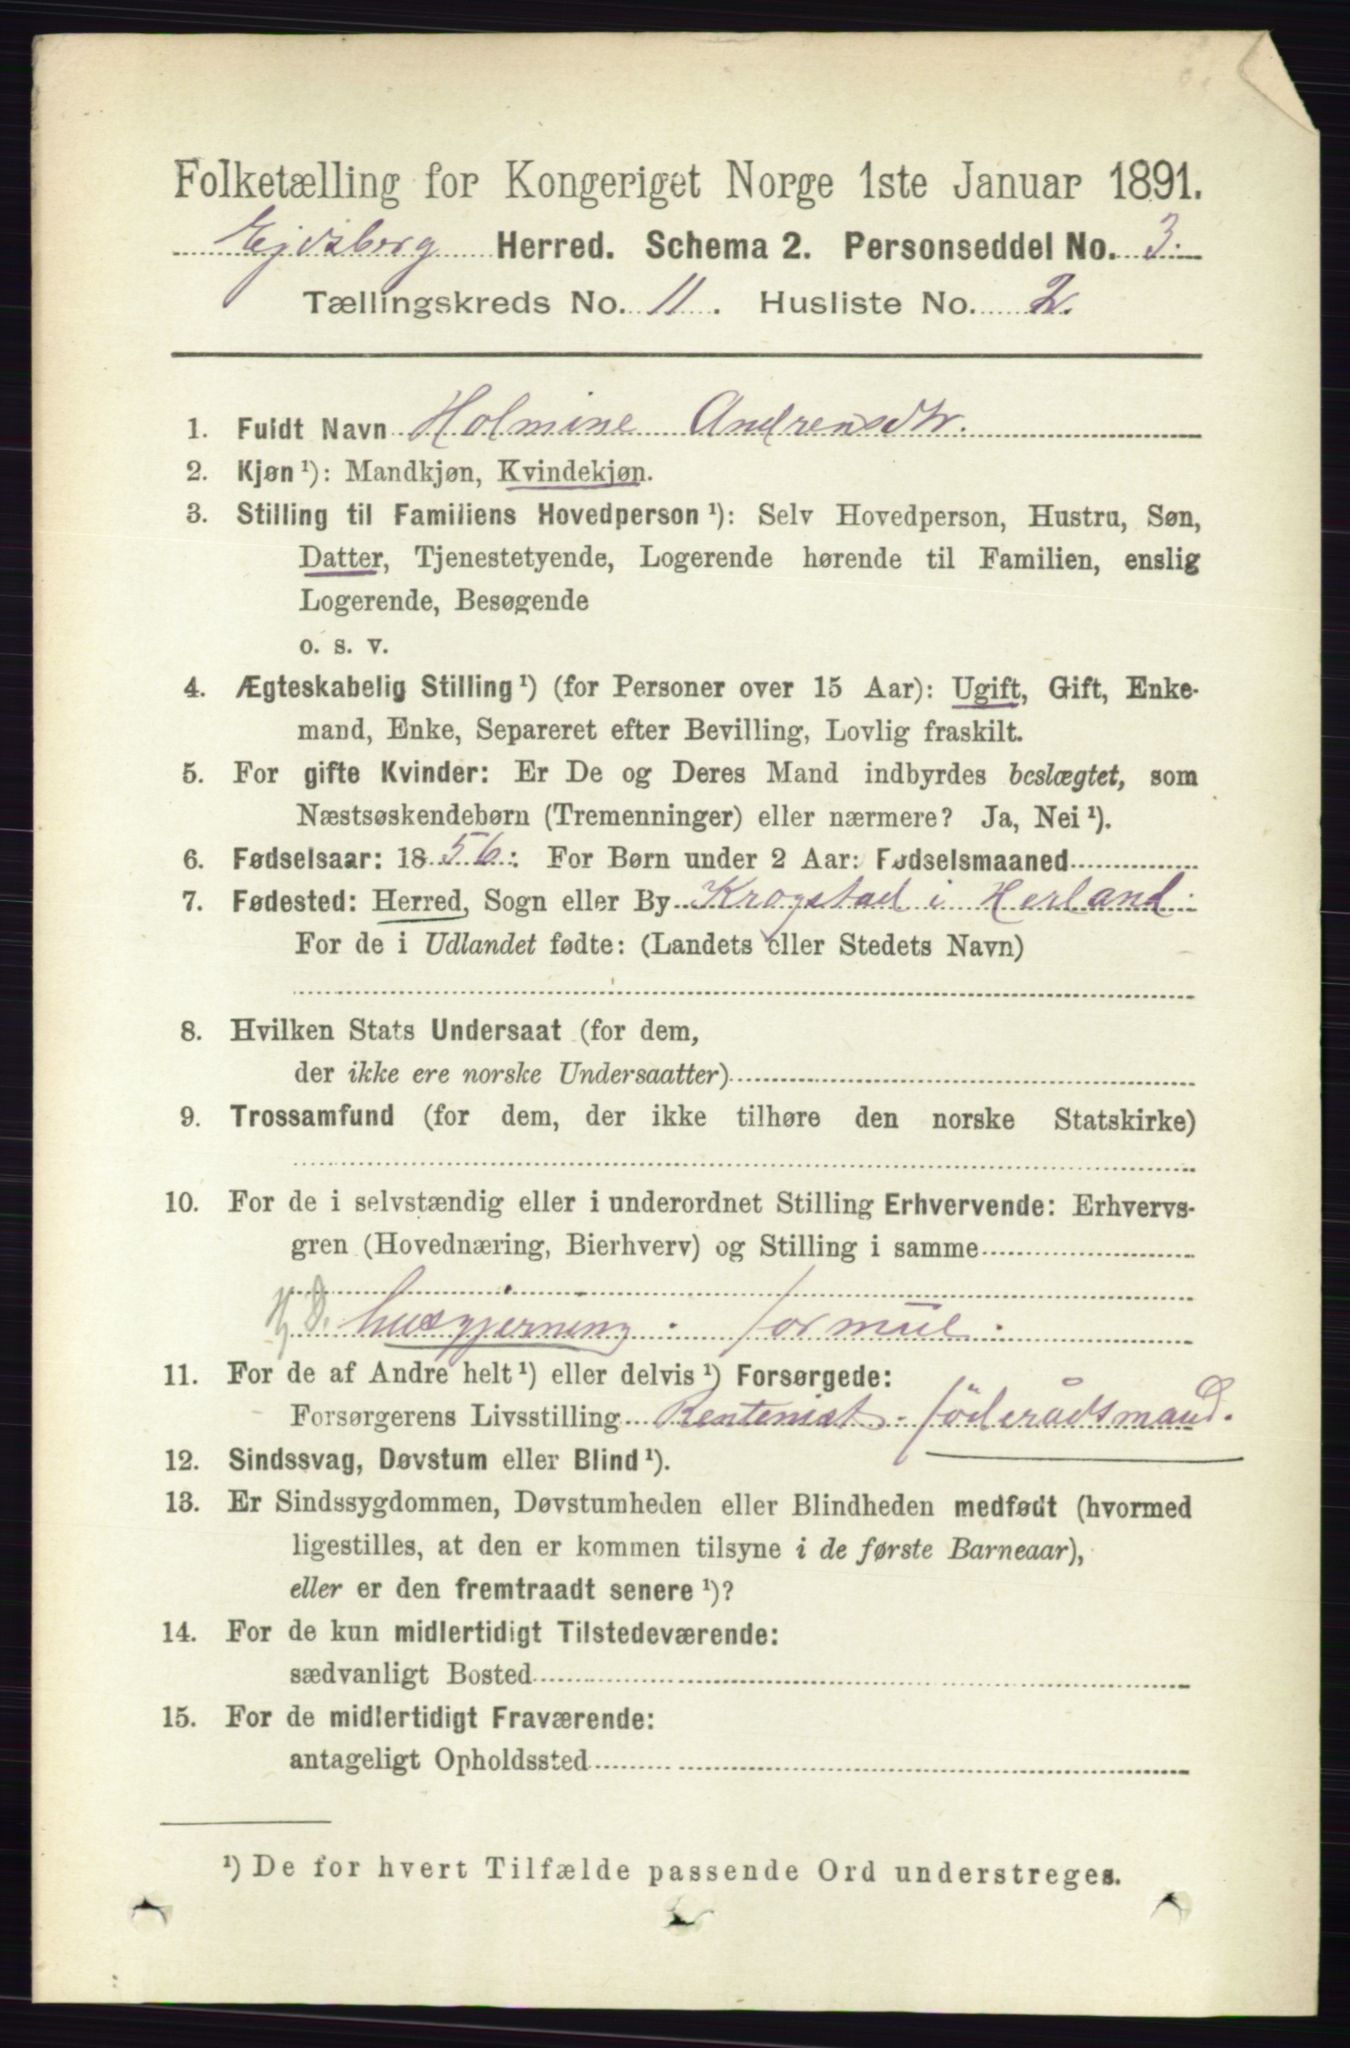 Folketælling for Kongeriget Norge 1ste Januar 1891.
Ejdsberg Herred. Schema 2. Personseddel No. 3.
Tællingskreds No. 11. Husliste No. 2.
1. Fuldt Navn Holmine Andrensdtr.
2. Kjøn¹): Mandkjøn, Kvindekjøn.
3. Stilling til Familiens Hovedperson¹): Selv Hovedperson, Hustru, Søn,
Datter, Tjenestetyende, Logerende hørende til Familien, enslig
Logerende, Besøgende
o. s. v.
4. Ægteskabelig Stilling¹) (for Personer over 15 Aar): Ugift, Gift, Enke-
mand, Enke, Separeret efter Bevilling, Lovlig fraskilt.
5. For gifte Kvinder: Er De og Deres Mand indbyrdes beslægtet, som
Næstsøskendebørn (Tremenninger) eller nærmere? Ja, Nei¹).
6. Fødselsaar: 1856: For Børn under 2 Aar: Fødselsmaaned
7. Fødested: Herred, Sogn eller By Krogstad i Herland
For de i Udlandet fødte: (Landets eller Stedets Navn)
8. Hvilken Stats Undersaat (for dem,
der ikke ere norske Undersaatter)
9. Trossamfund (for dem, der ikke tilhøre den norske Statskirke)
10. For de i selvstændig eller i underordnet Stilling Erhvervende: Erhvervs-
gren (Hovednæring, Bierhverv) og Stilling i samme
husgjerning.
11. For de af Andre helt¹) eller delvis¹) Forsørgede:
Forsørgerens Livsstilling Rentenist. föderådsmand.
12. Sindssvag, Døvstum eller Blind¹).
13. Er Sindssygdommen, Døvstumheden eller Blindheden medfødt (hvormed
ligestilles, at den er kommen tilsyne i de første Barneaar),
eller er den fremtraadt senere¹)?
14. For de kun midlertidigt Tilstedeværende:
sædvanligt Bosted
15. For de midlertidigt Fraværende:
antageligt Opholdssted
¹) De for hvert Tilfælde passende Ord understreges.